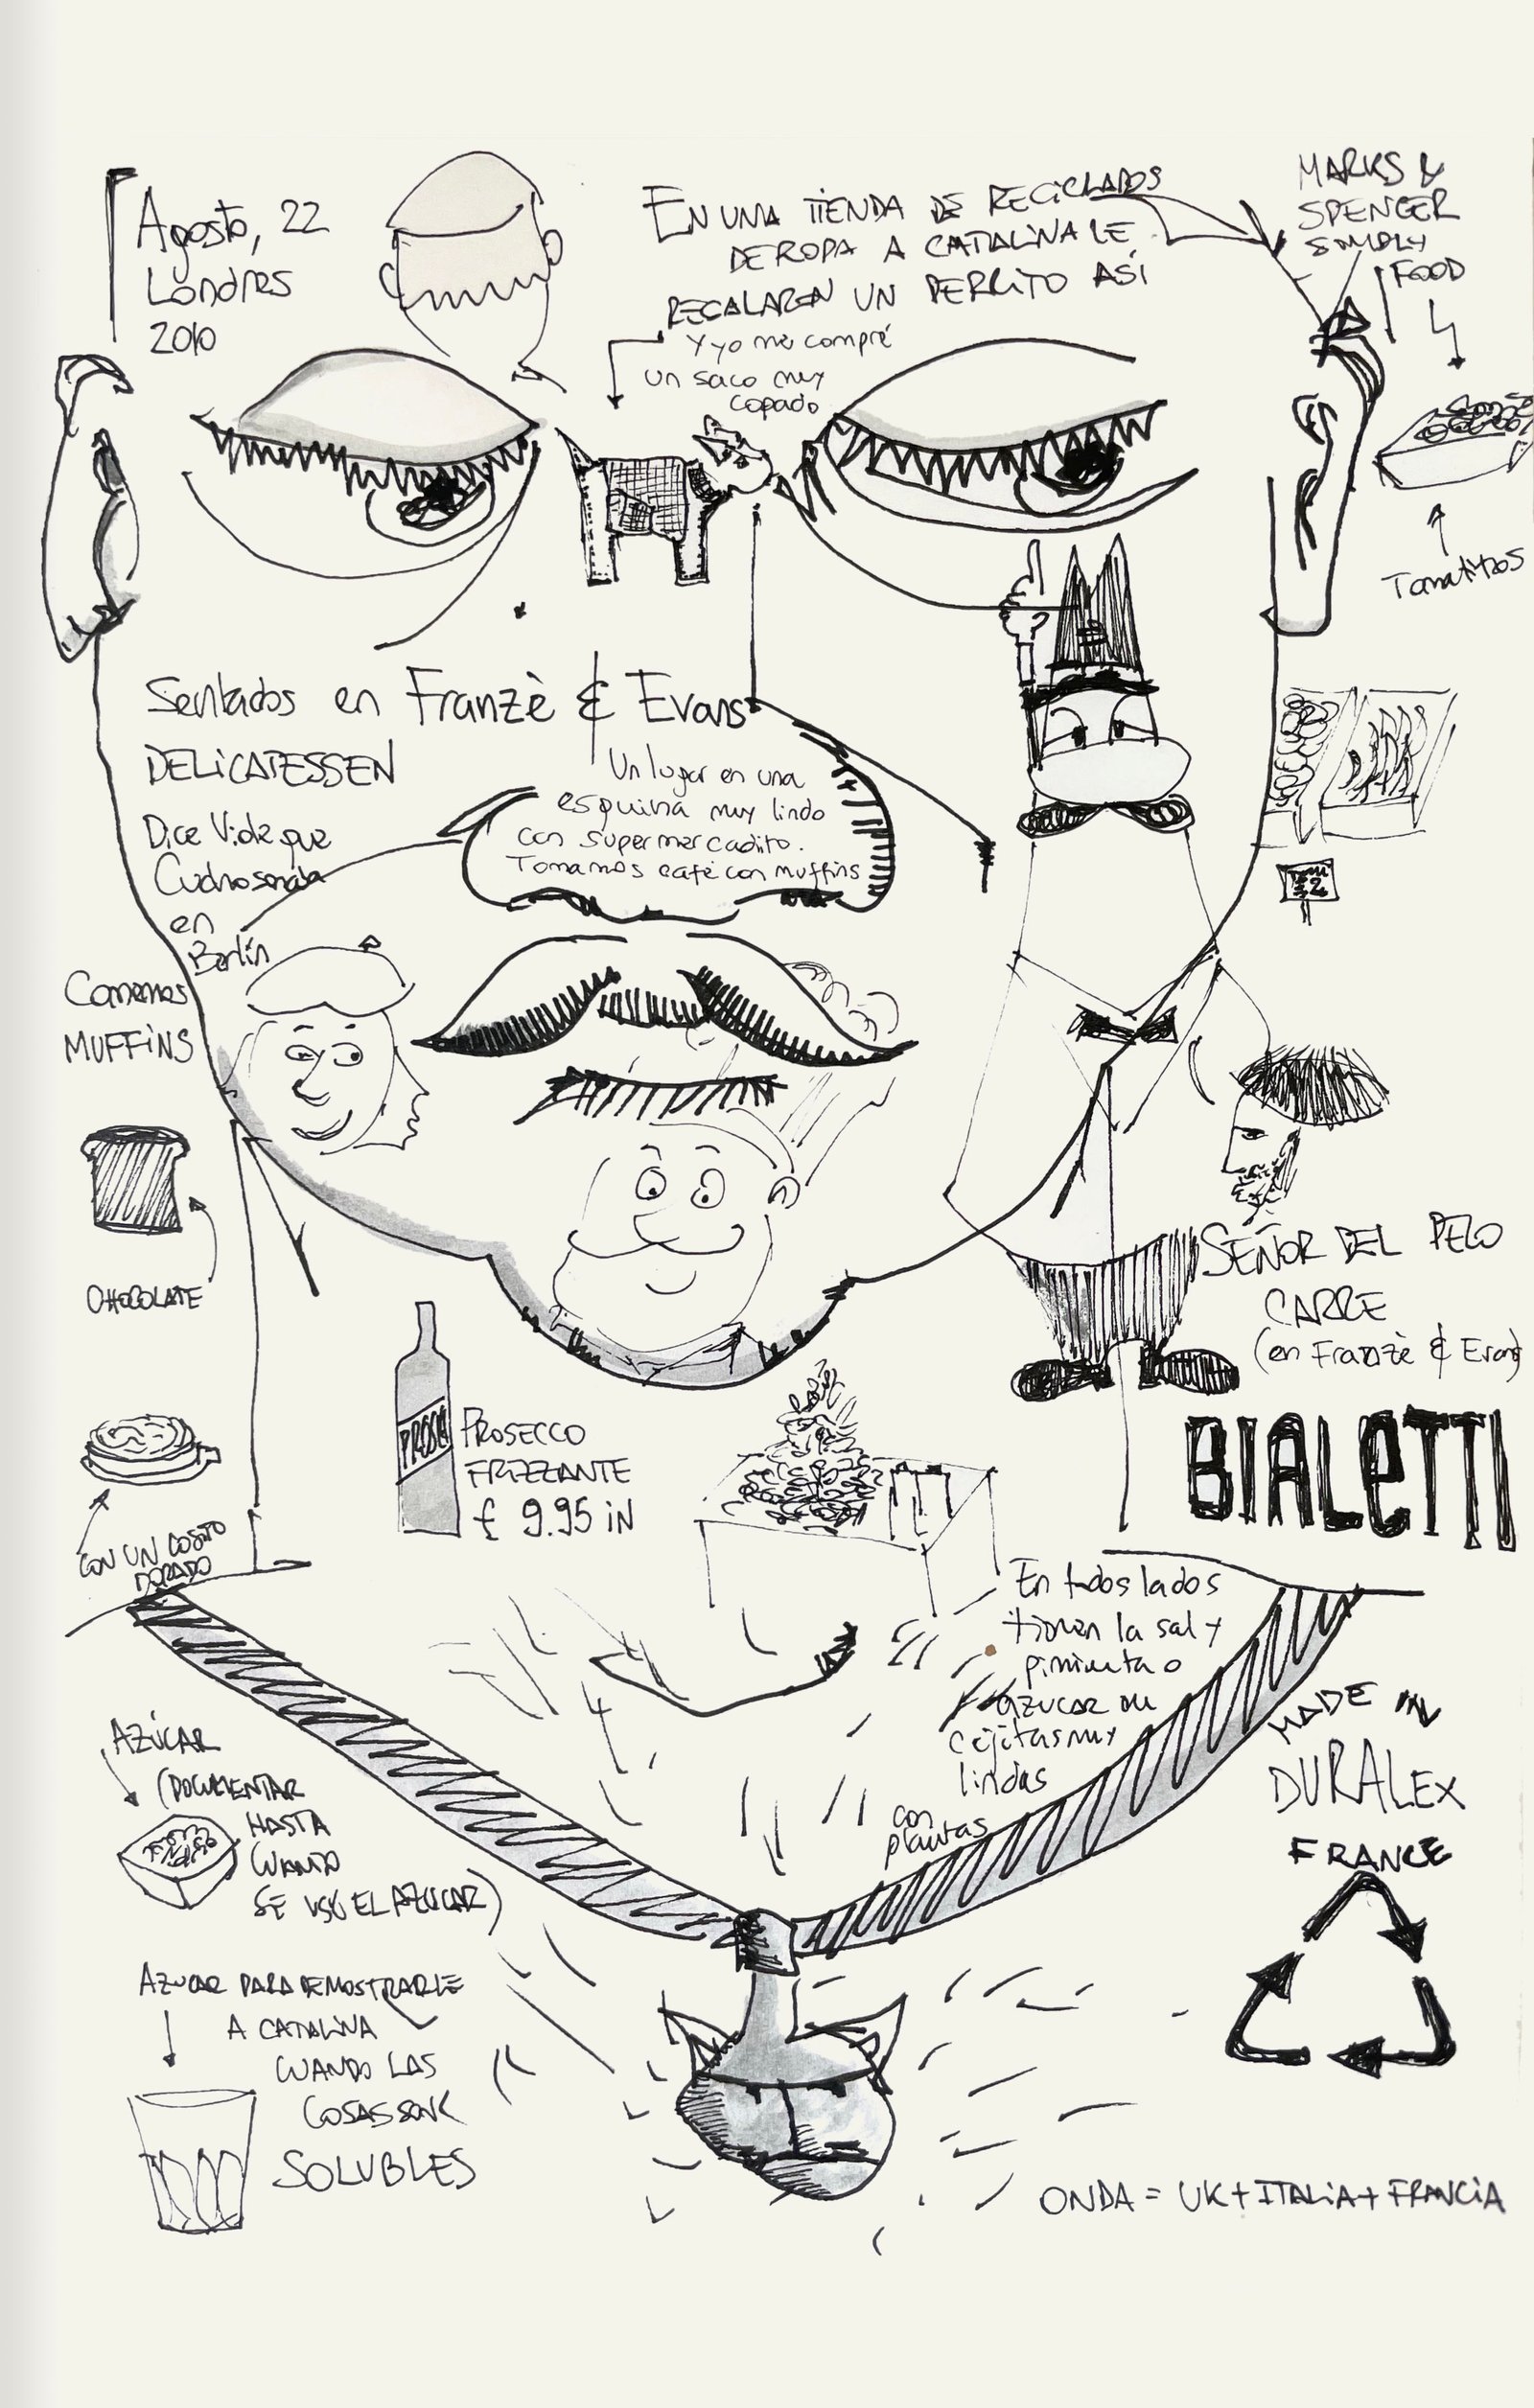 Agosto, 22
Londres
2010
EN UNA TIENDA DE RECICLADOS
DE ROPA A CATALINA LE
REGALAREN UN PERRITO ASÍ
Y yo me compré
un saco muy
copado
MARKS &
SPENCER
SIMPLY
FOOD
Tomatitos
Sentados en Franzè & Evans
DELICATESSEN
Un lugar en una
esquina muy lindo
con supermercadito.
Tomamos café con muffins
Dice Vide que
en
Berlín
Comemos
MUFFINS
CHOCOLATE
SEÑOR DEL PELO
CARRE
(en Franzè & Evans)
BIALETTI
PROSECCO
FRIZZANTE
£ 9.95 IN
CON UN COSITO
DORADO
En todos lados
tienen la sal y
pimienta o
azucar en
cajitas muy
lindas
con
plantas
AZÚCAR
(DOCUMENTAR
HASTA
CUANDO
SE USÓ EL AZUCAR)
MADE IN
DURALEX
FRANCE
AZUCAR PARA DEMOSTRARLE
A CATALINA
CUANDO LAS
COSAS SON
SOLUBLES
ONDA = UK + ITALIA + FRANCIA